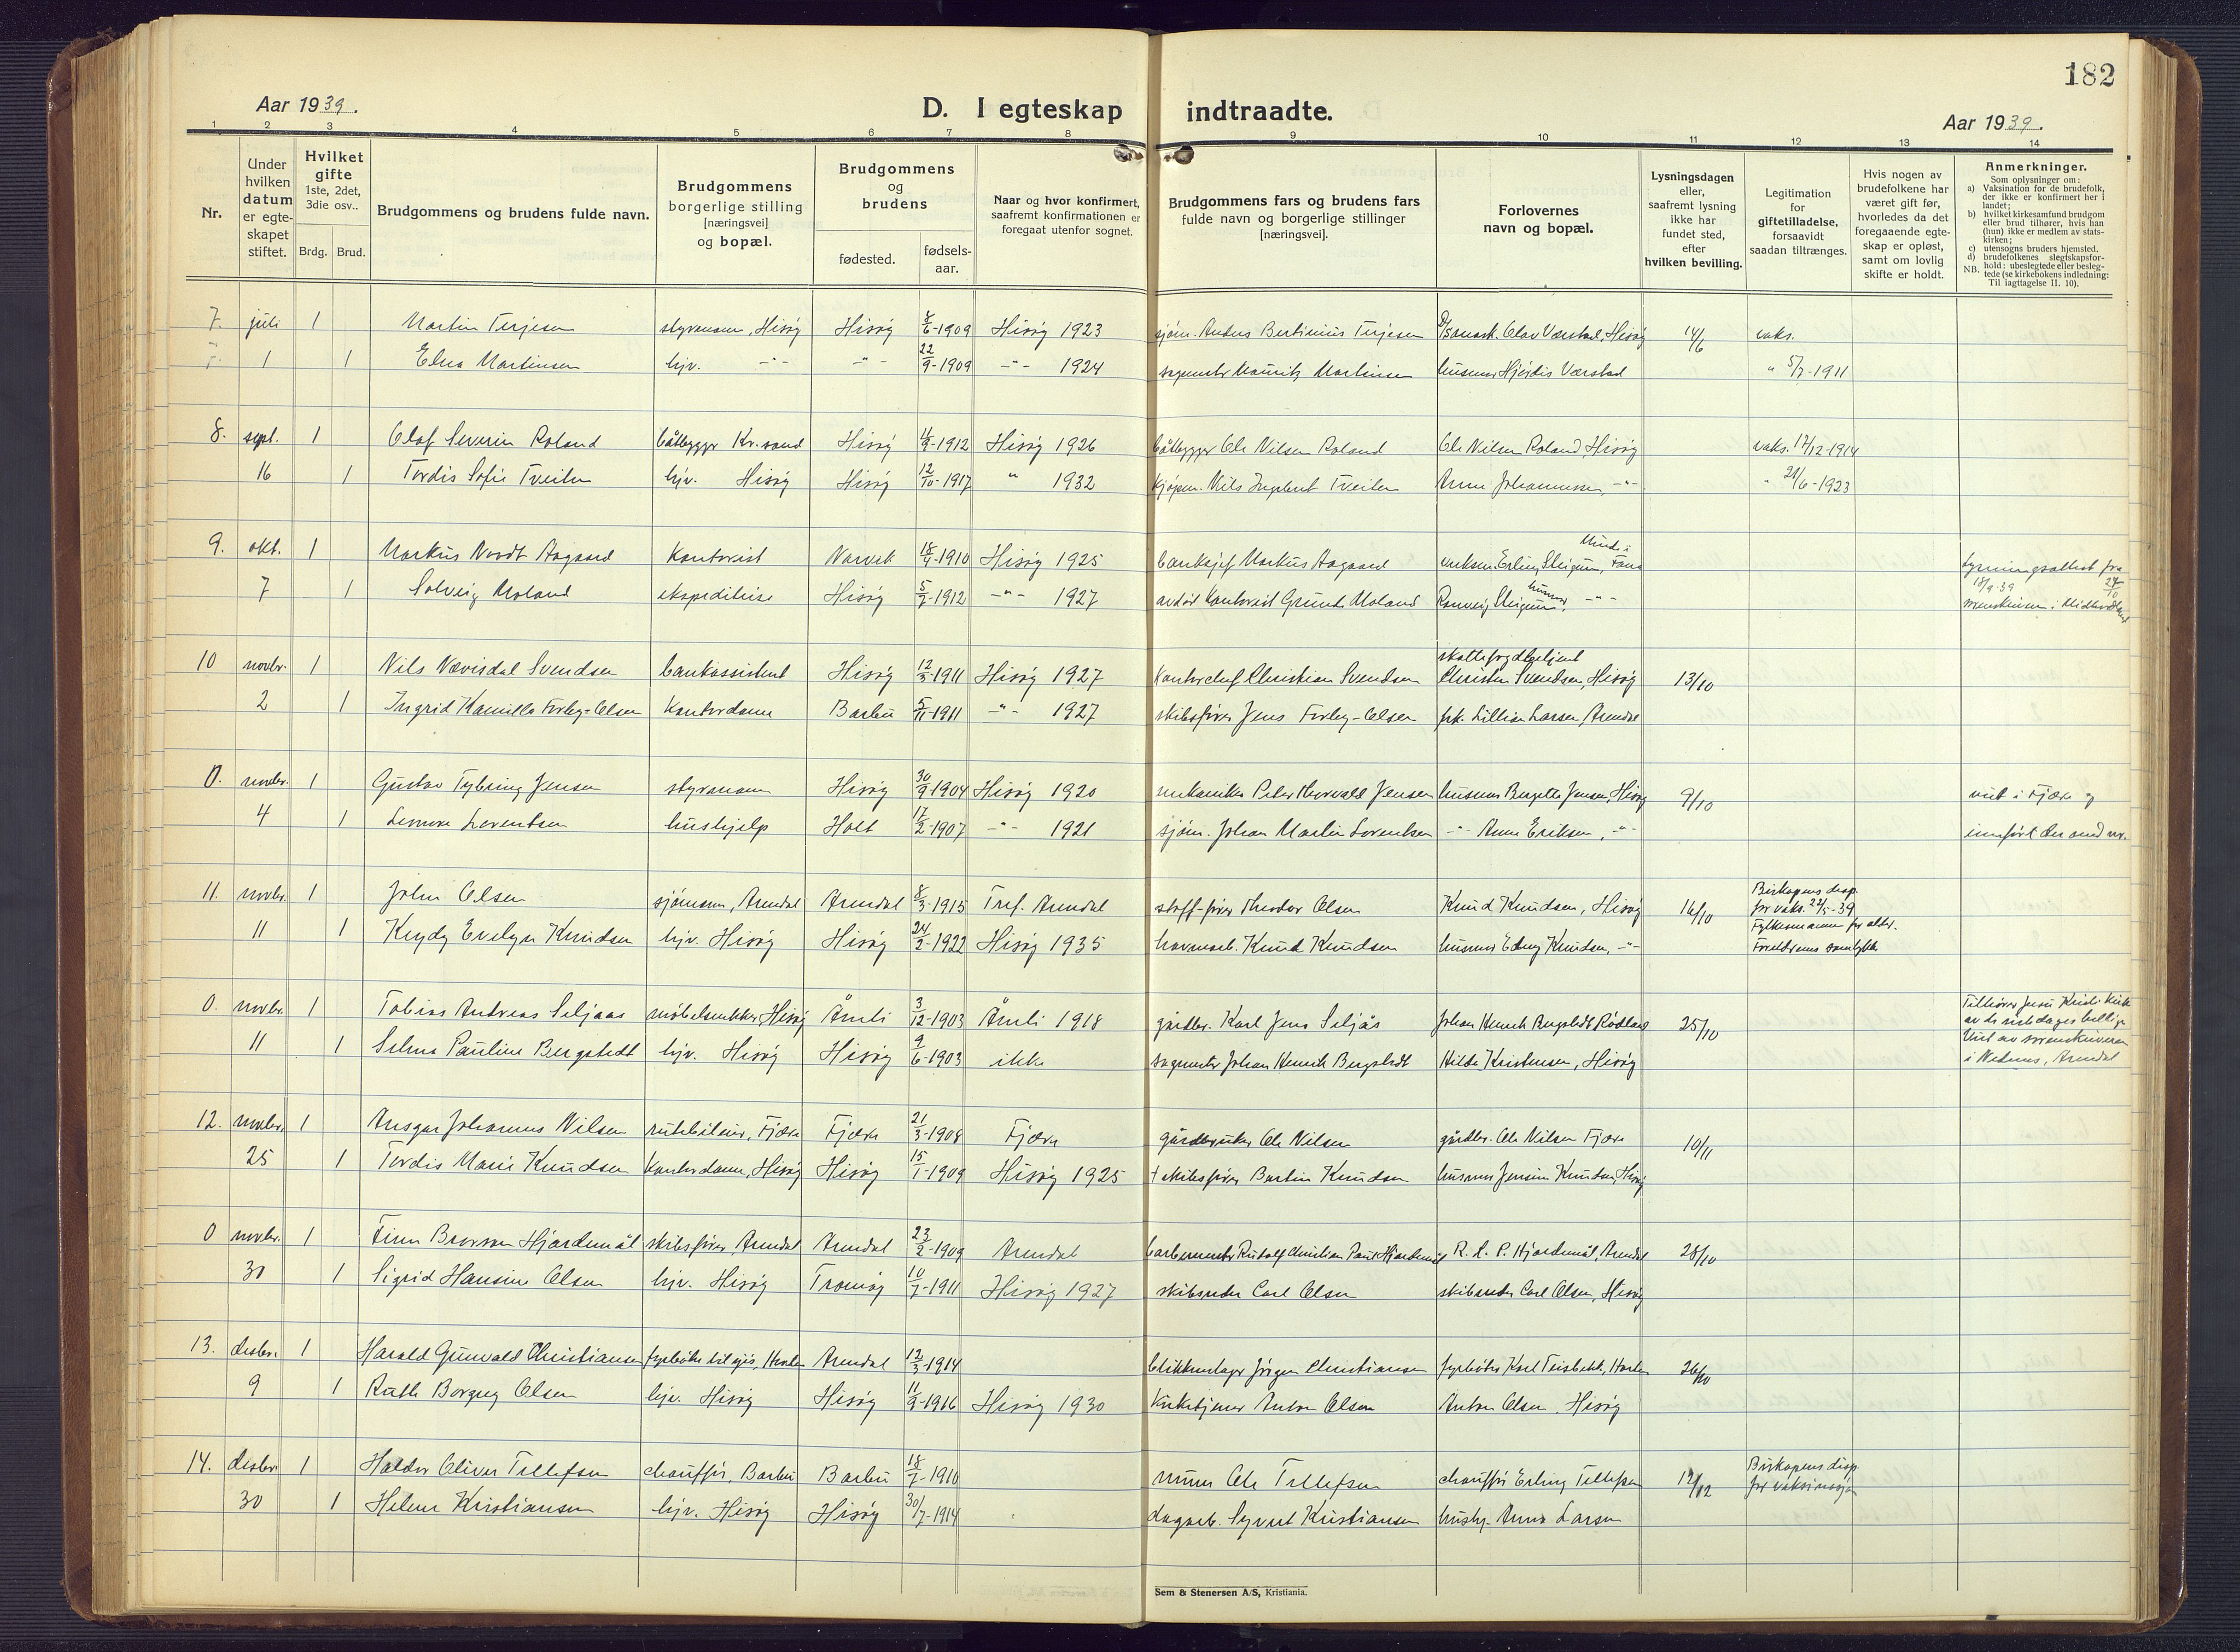 182
Aar 1939.
D. I egteskap indtraadte.
Aar 1939.
1 2 3 4 5 6 7 8 9 10 11 12 13 14
Nr.
Under hvilken datum er egteskapet stiftet.
Hvilket gifte 1ste, 2det, 3die osv..
Brdg. Brud.
Brudgommens og brudens fulde navn.
Brudgommens borgerlige stilling [næringsvei] og bopæl.
Brudgommens og brudens
fødested.
fødsels-aar.
Naar og hvor konfirmert, saafremt konfirmationen er foregaat utenfor sognet.
Brudgommens fars og brudens fars fulde navn og borgerlige stillinger [næringsvei].
Forlovernes navn og bopæl.
Lysningsdagen eller, saafremt lysning ikke har fundet sted, efter hvilken bevilling.
Legitimation for giftetilladelse, forsaavidt saadan tiltrænges.
Hvis nogen av brudefolkene har været gift før, hvorledes da det foregaaende egteskap er opløst, samt om lovlig skifte er holdt.
Anmerkninger.
Som oplysninger om:
a) Vaksination for de brudefolk, der ikke er konfirmert her i landet;
b) hvilket kirkesamfund brudgom eller brud tilhører, hvis han (hun) ikke er medlem av statskirken;
c) utensogns bruders hjemsted.
d) brudefolkenes slegtskapsforhold: ubeslegtede eller beslegtede (se kirkebokens indledning: Til iagttagelse II. 10).
NB.
7. juli 1 Martin Terjesen styrmann, Hisøy Hisøy 8/6-1909 Hisøy 1923 sjøm. Anders Bertinius Terjesen Olav Værstad, Hisøy 14/6 vaks.
1 1 Elna Martinsen hjv. -"- -"- 22/9-1909 -"- 1924 Mauritz Martinsen husmor Hjørdis Værstad " 5/7-1911
8. sept. 1 Olaf Severin Roland båtbygger Kr.sand Hisøy 4/9-1912 Hisøy 1926 båtbygger Ole Nilsen Roland Ole Nilsen Roland, Hisøy vaks. 17/12-1914
16 1 Tordis Sofie Tveiten hjv. Hisøy Hisøy 12/10-1917 " 1932 kjøpm. Nils Ingebret Tveiten Anne Johannessen, -"- " 21/6-1923
9. okt. 1 Markus Nordt Aagaard kontorist Narvik 18/4-1910 Hisøy 1925 banksjef Markus Aagaard Erling Steigum, Fana
7 1 Solveig Moland ekspeditrise Hisøy 5/7-1912 -"- 1927 avdød kontorist Moland Ranveig Steigum, husmor -"-
10 novbr. 1 Nils Nævisdal Svendsen bankassistent Hisøy 12/3-1911 Hisøy 1927 kontorchef Christian Svendsen skattefogdbetjent Christen Svendsen, Hisøy 13/10
2 1 Ingrid Kamilla Forby-Olsen kontordame Barbu 5/11-1911 -"- 1927 skibsfører Jens Forby-Olsen frk. Lillian Larsen, Arendal
0. novbr. 1 Gustav Tybring Jensen styrmann Hisøy 30/9-1904 Hisøy 1920 mekaniker Peter Thorvald Jensen husmor Bergitte Jensen, Hisøy 9/10 viet i Fjære og
4 1 Lenore Lorentsen hushjelp Holt 17/2-1907 -"- 1921 sjøm. Johan Martin Lorentsen -"- Anne Eriksen, -"- innført der med nr.
11. novbr. 1 John Olsen sjømann, Arendal Arendal 8/3-1915 Tref. Arendal Theodor Olsen Knud Knudsen, Hisøy 16/10 Biskopens disp. for vaks. 22/5-39
11 1 Keydy Evelyn Knudsen hjv. Hisøy Hisøy 24/2-1922 Hisøy 1935 havnearb. Knud Knudsen husmor Edny Knudsen, -"- Fylkesmannen for alder. Foreldrenes samtykke
0. novbr. 1 Tobias Andreas Seljaas møbelsnekker, Hisøy Åmli 3/12-1903 Åmli 1918 gårdbr. Karl Jens Seljås Johan Henrik Bergstedt 25/10 Tilhører Jesu Kristi Kirke av de siste dages hellige
11 1 Selma Pauline Bergstedt hjv. Hisøy Hisøy 9/6-1903 ikke Johan Henrik Bergstedt Hilda Kristensen, Hisøy Viet av sorenskriveren i Nedenes, Arendal
12. novbr. 1 Ansgar Johannes Nilsen rutebileier, Fjære Fjære 21/3-1908 Fjære gårdbruker Ole Nilsen gårdbr. Ole Nilsen Fjære 10/11
25 1 Tordis Marie Knudsen kontordame, Hisøy Hisøy 15/1-1909 Hisøy 1925 † skibsfører Bertin Knudsen husmor Jensine Knudsen, Hisøy
0 novbr. 1 Finn Brorson Hjardemål skibsfører, Arendal Arendal 23/2-1909 Arendal Rudolf Christian Paus Hjardemål R. C. P. Hjardemål, Arendal 28/10
30 1 Sigrid Hansine Olsen hjv. Hisøy Tromøy 10/7-1911 Hisøy 1927 skibsreder Carl Olsen skibsreder Carl Olsen, Hisøy
13. desbr. 1 Harald Gunvald Christiansen fyrbøter Arendal 12/3-1914 blikkenslager Jørgen Christiansen fyrbøter Karl 26/10
9 1 Ruth Borgny Olsen hjv. Hisøy Hisøy 11/9-1916 Hisøy 1930 kirketjener Anton Olsen Anton Olsen, Hisøy
14. desbr. 1 Haldor Oliver Tellefsen chauffør, Barbu Barbu 18/7-1910 murer Ole Tellefsen chauffør Erling Tellefsen 12/12 Biskopens disp. for vaksinasjon
30 1 Helene Kristiansen hjv. Hisøy Hisøy 30/7-1914 dagarb. Syvert Kristiansen hushj. Anna Larsen
Sem & Stenersen A/S, Kristiania.